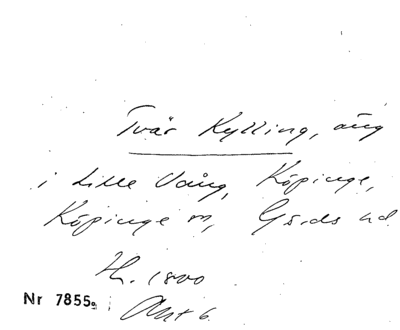 Tvär Kylling, äng
i Lille Vång, Köpinge,
Köpinge sn, Gärds hd.
H. 1800
Nr 7855a
Akt 6